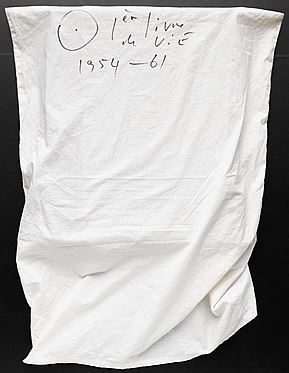 1èr livre
de ViE
1954-61